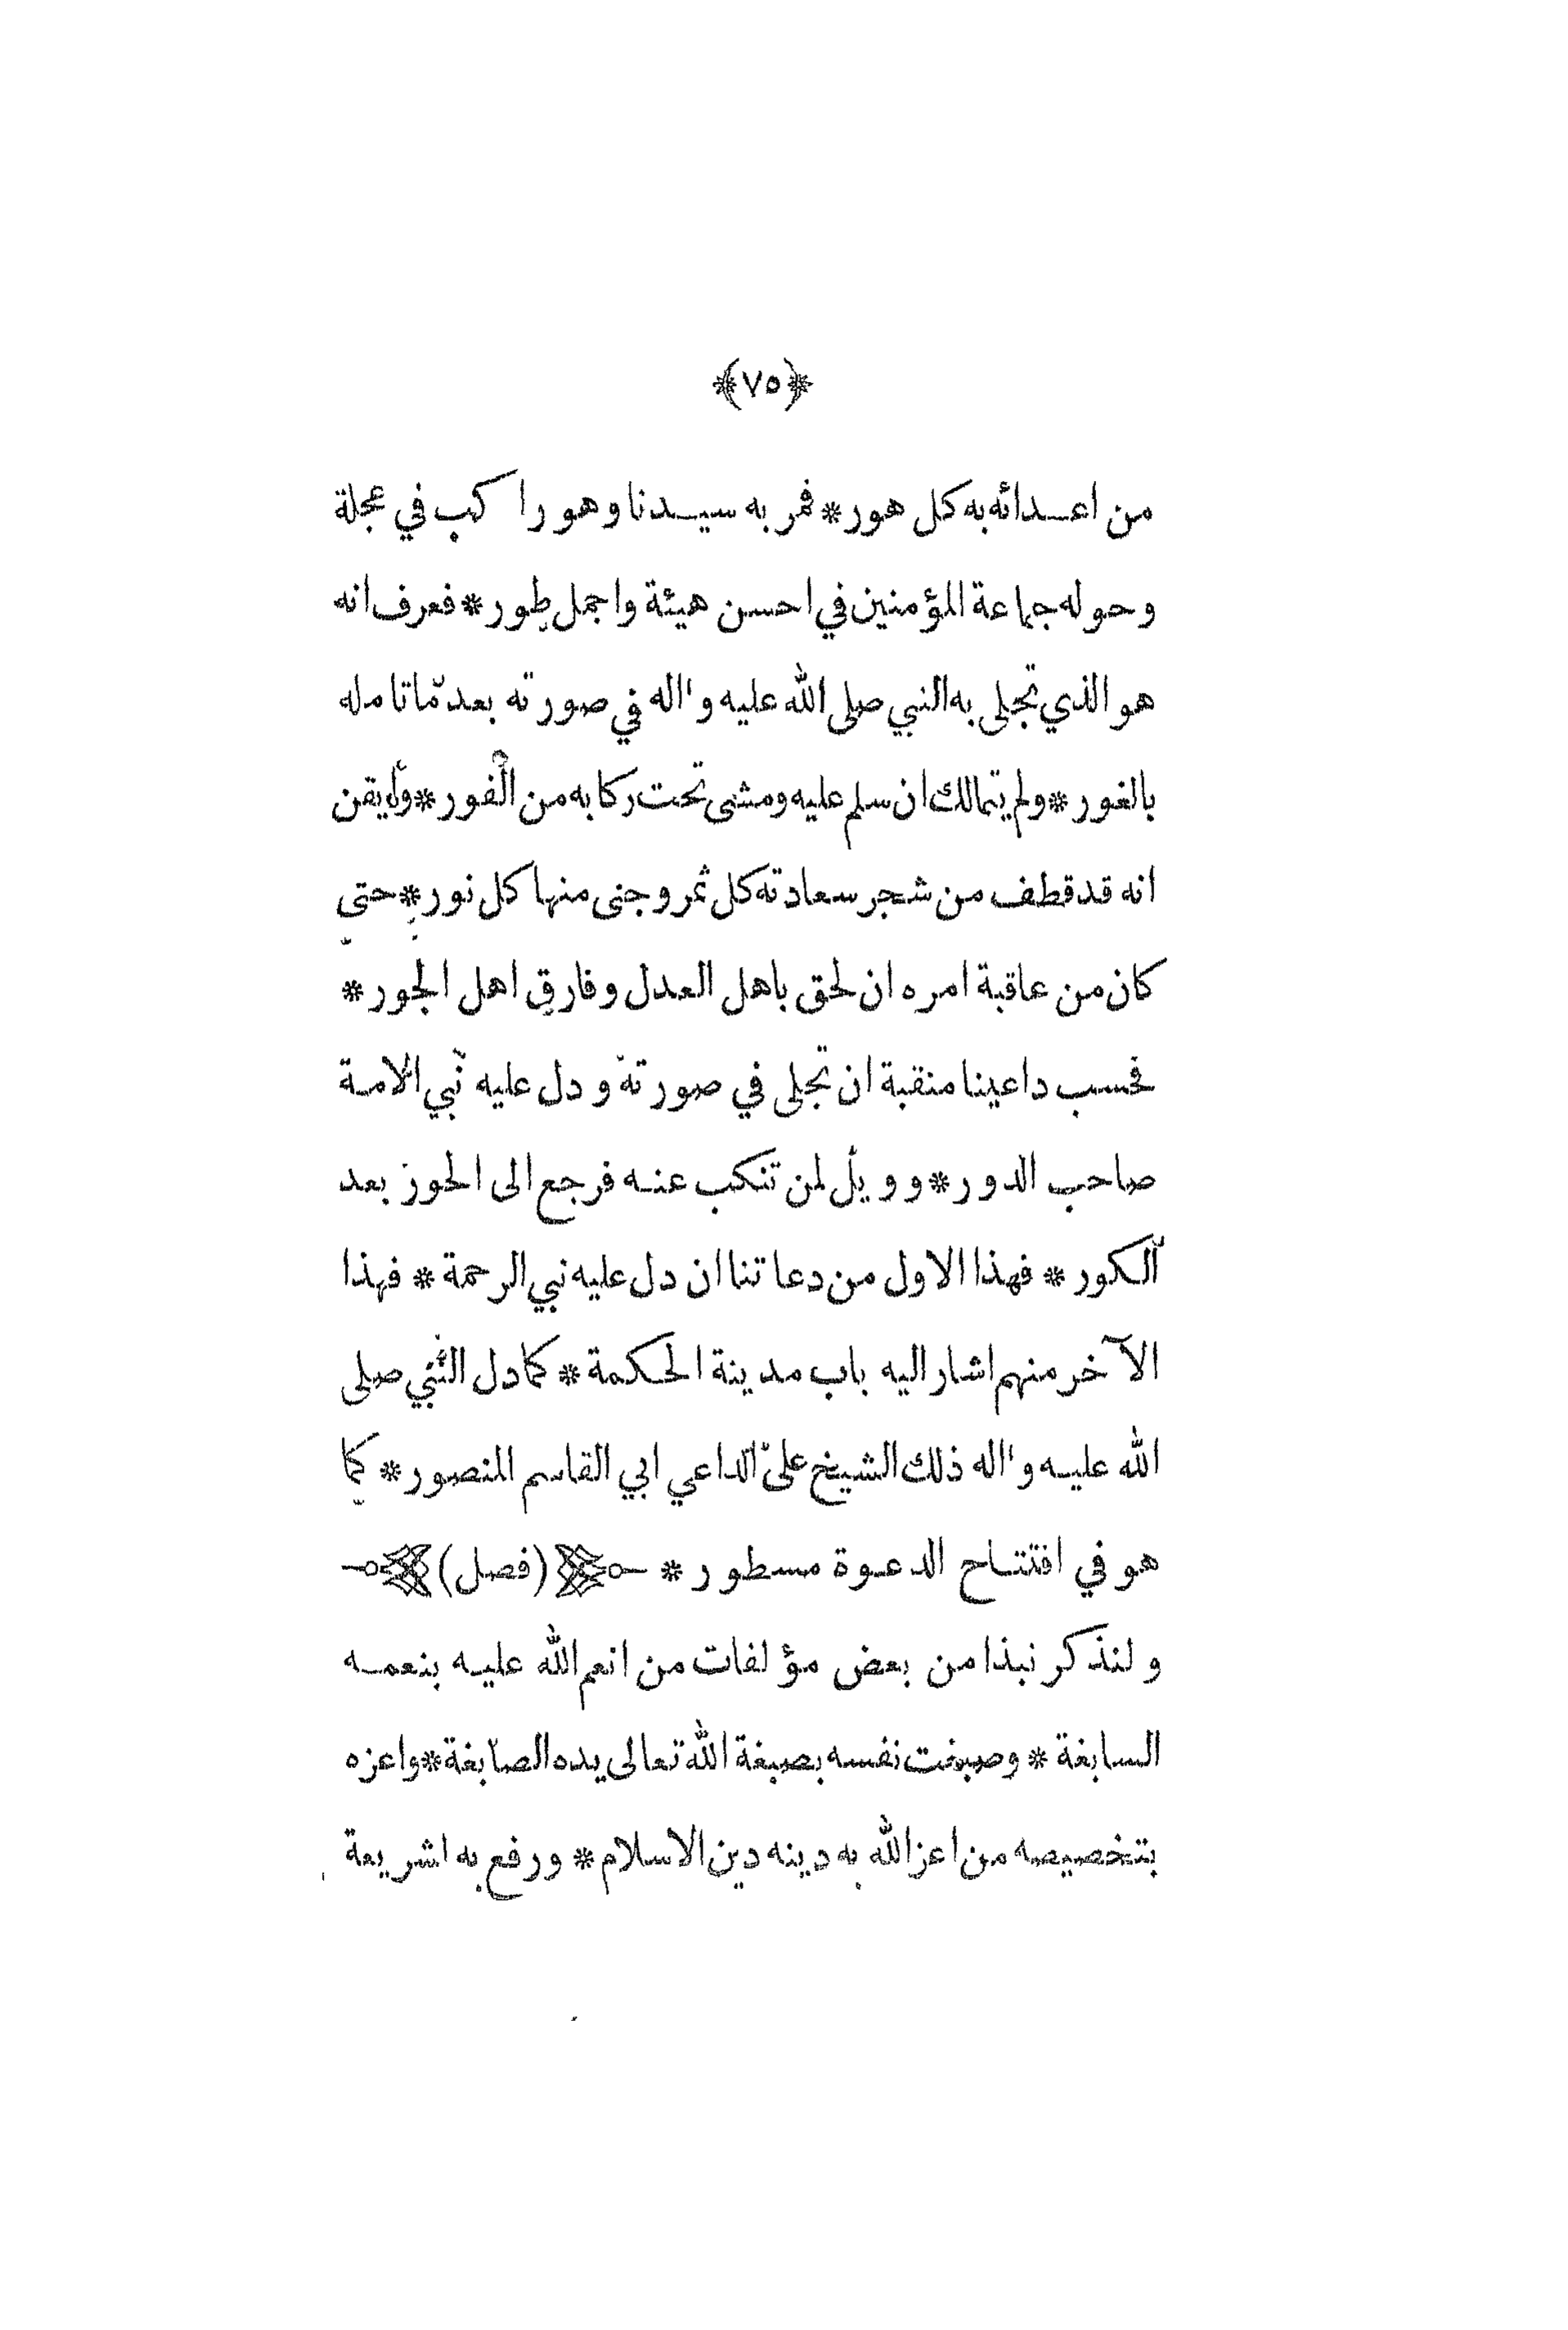 ﴿٧٥﴾
من اعدائه به كل هور * فمر به سيدنا وهو راكب في عجلة
وحوله جماعة المؤمنين في احسن هيئة واجمل طور * فعرف انه
هو الذي تجلى به النبي صلى الله عليه واله في صورته بعد ما تامله
بالغور * ولم يتمالك ان سلم عليه ومشى تحت ركابه من الفور * وايقن
انه قد قطف من شجر سعادته كل ثمر وجنى منها كل نور * حتى
كان من عاقبة امره ان لحق باهل العدل وفارق اهل الجور *
فحسب داعينا منقبة ان تجلى في صورته ودل عليه نبي الامة
صاحب الدور * وويل لمن تنكب عنه فرجع الى الحور بعد
الكور * فهذا الاول من دعاتنا ان دل عليه نبي الرحمة * فهذا
الآخر منهم اشار اليه باب مدينة الحكمة * كما دل النبي صلى
الله عليه واله ذلك الشيخ على الداعي ابي القاسم المنصور * كما
هو في افتتاح الدعوة مسطور * (فصل)
ولنذكر نبذا من بعض مؤلفات من انعم الله عليه بنعمه
السابغة * وصبغت نفسه بصبغة الله تعالى يده الصابغة * واعزه
بتخصيصه من اعز الله به دينه دين الاسلام * ورفع به اشريعة